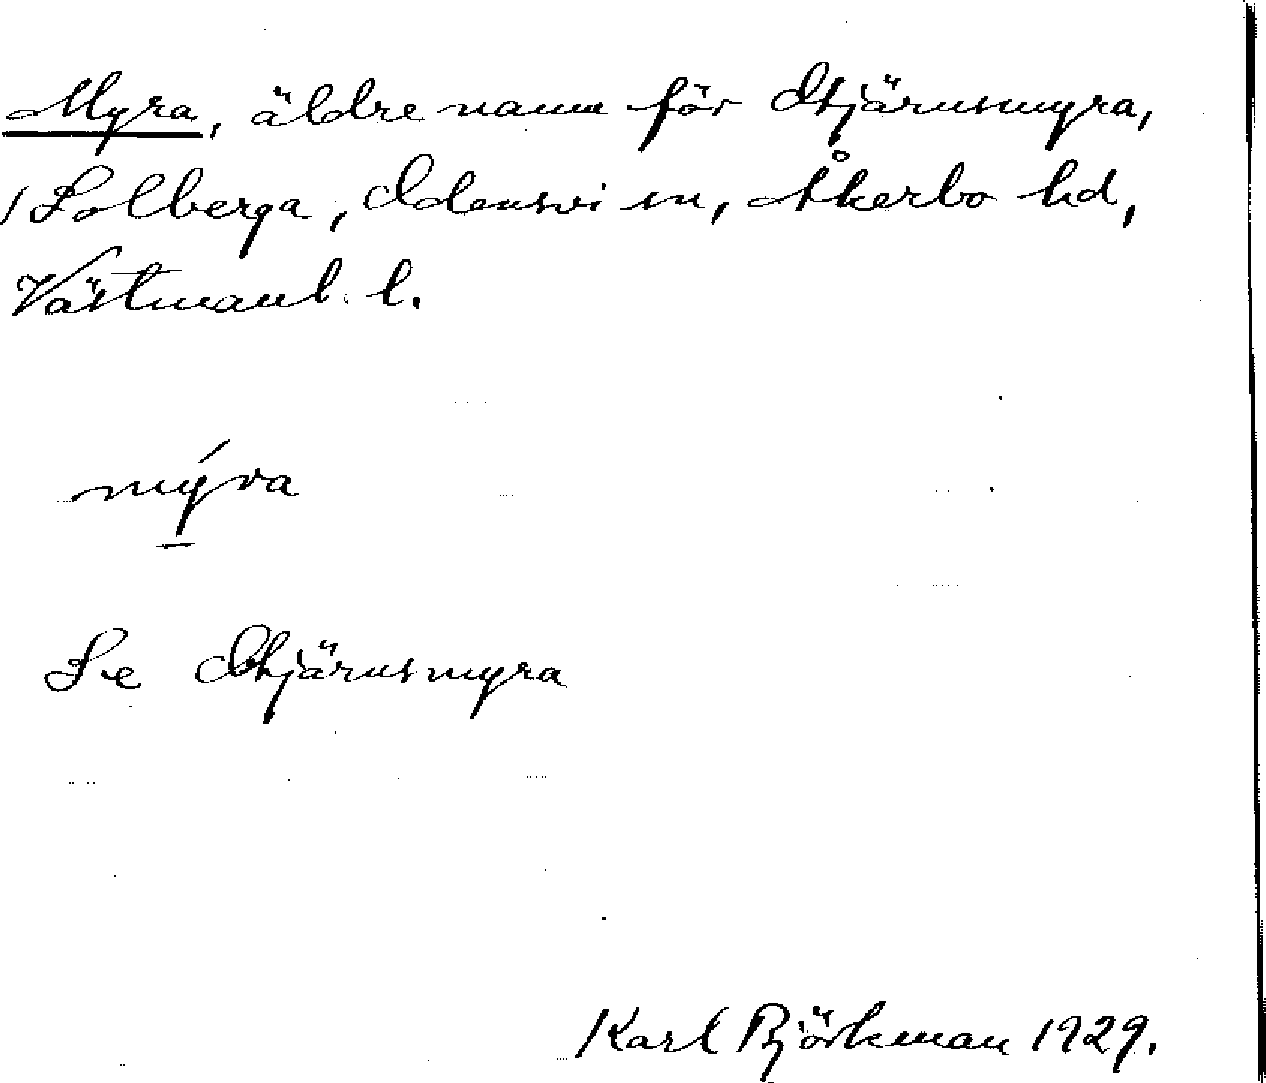 Myra, äldre namn för Stjärnsmyra,
Solberga, Odensvi sn, Åkerbo hd,
Västmanl. l.
mýra
Se Stjärnsmyra
Karl Björkman 1929.